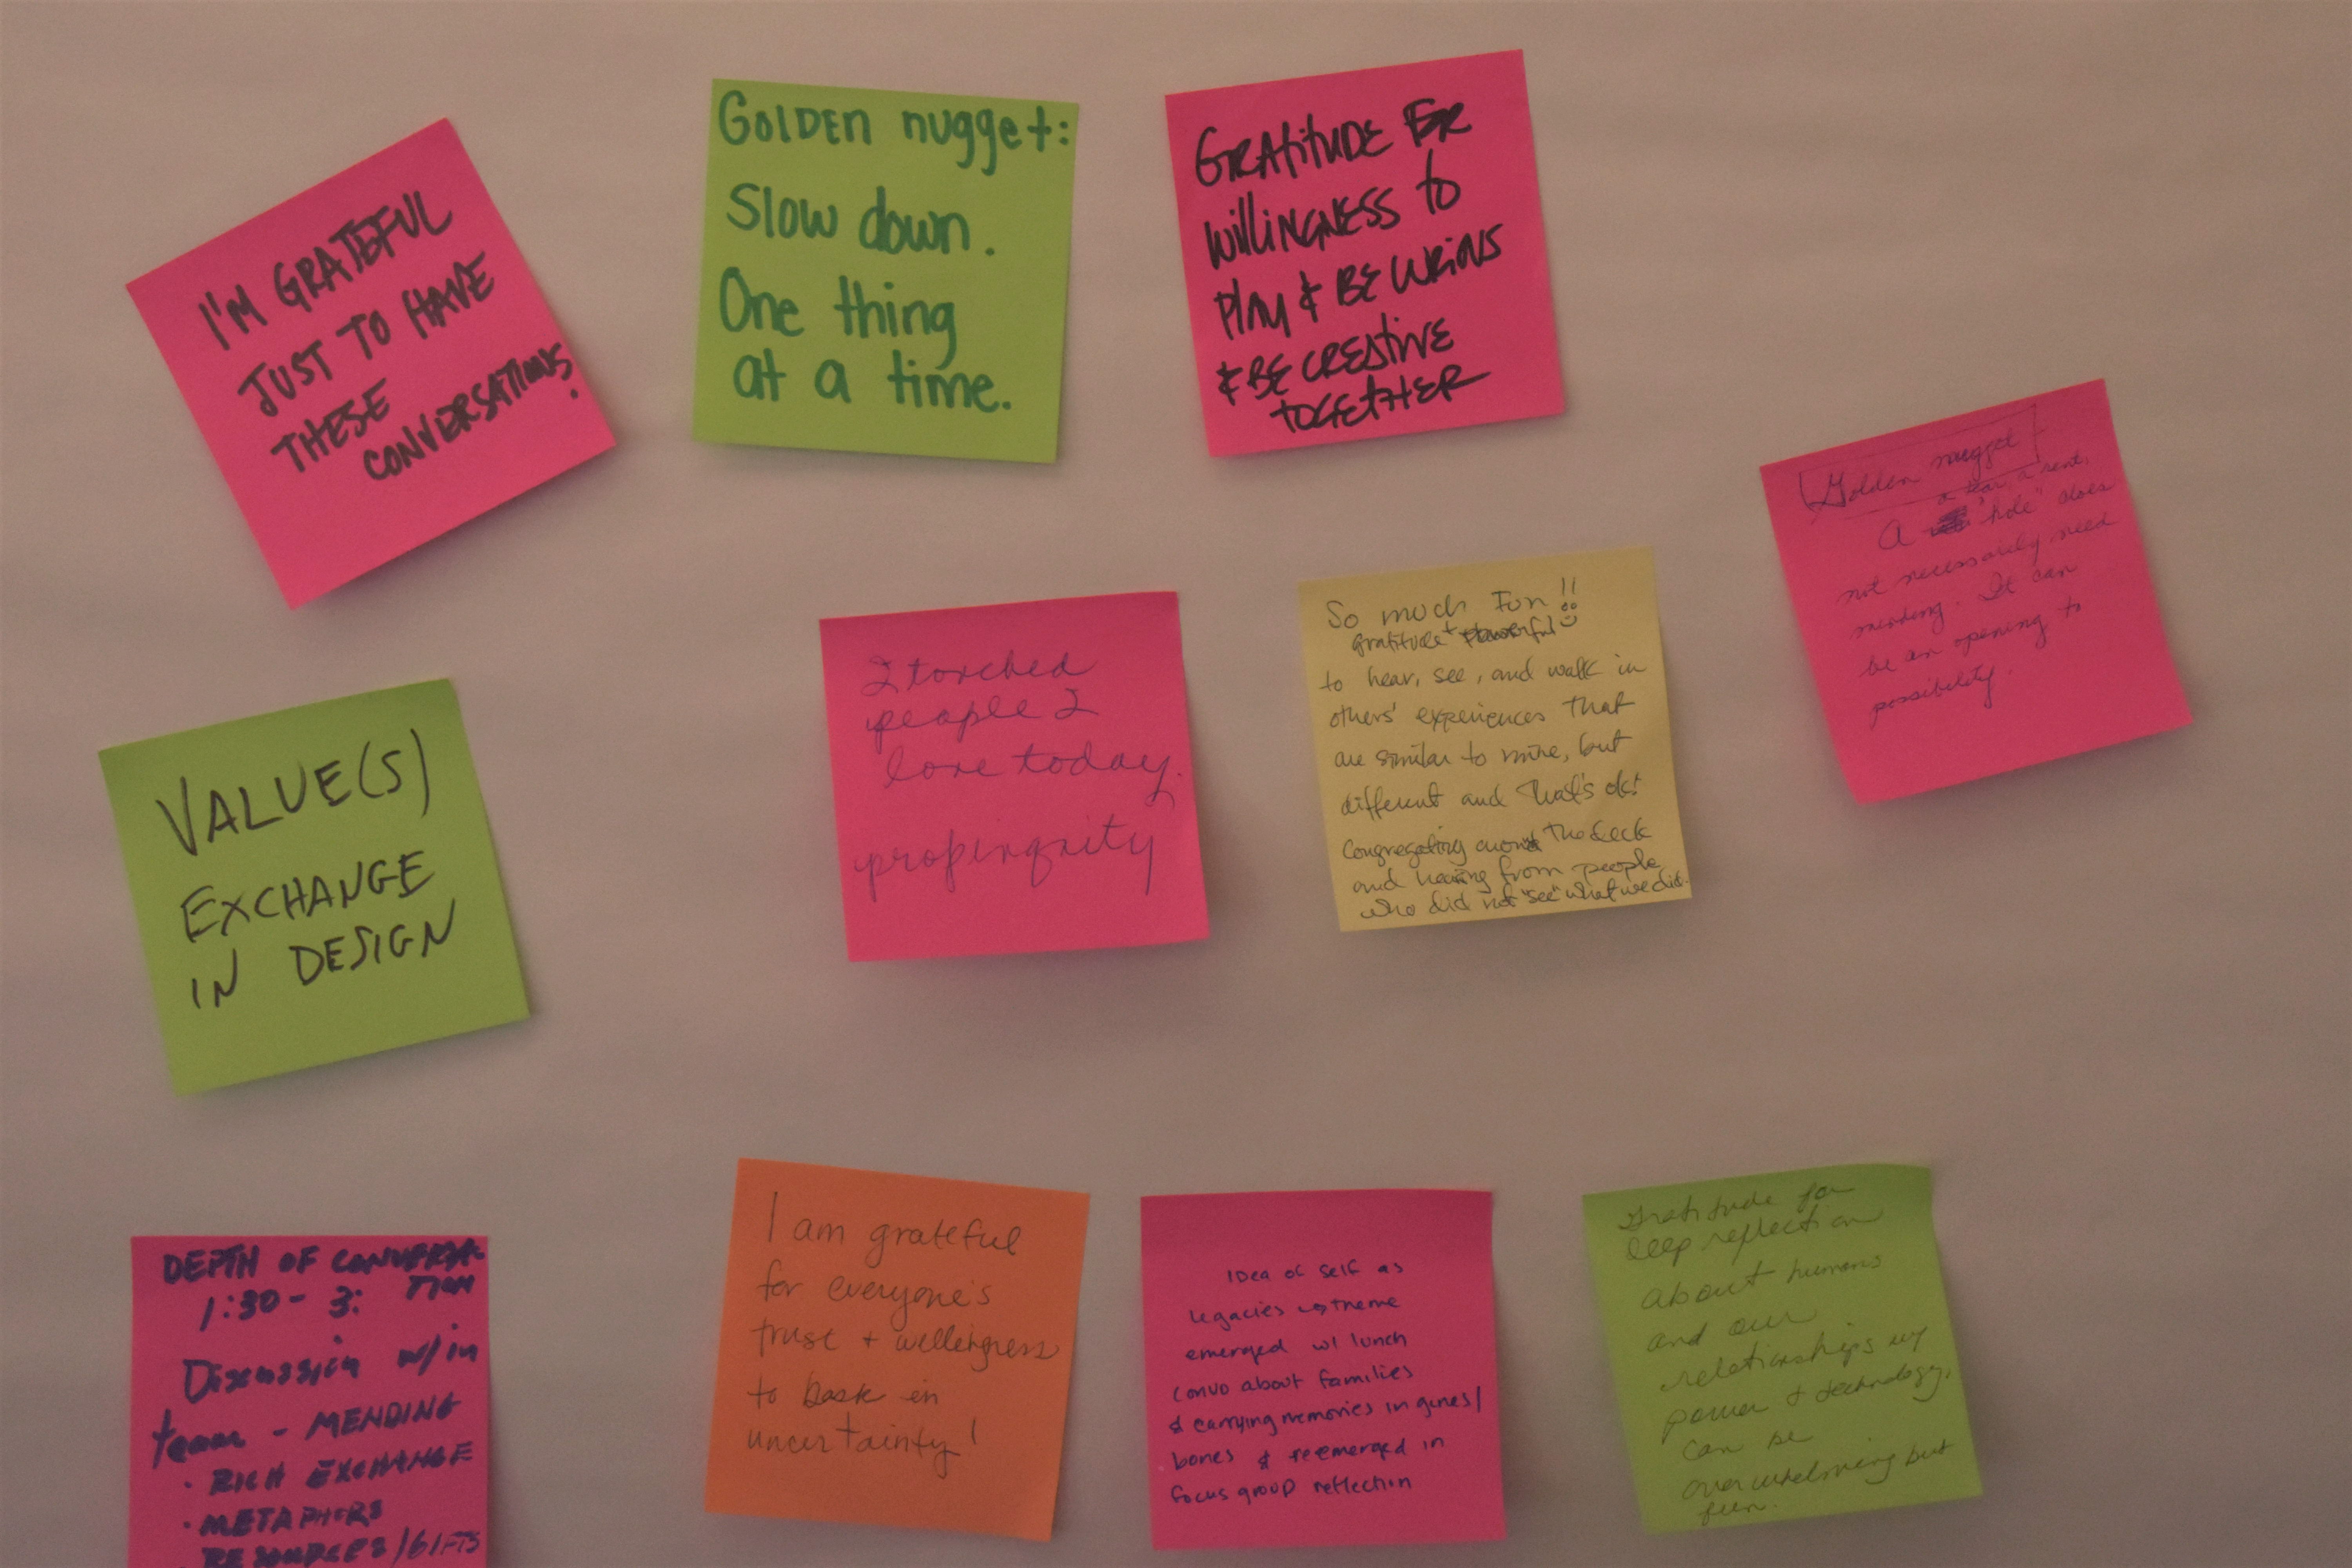 I'M GRATEFUL
JUST TO HAVE
THESE
CONVERSATIONS!
GOLDEN nugget:
Slow down.
One thing
at a time.
GRATITUDE FOR
WILLINGNESS to
PLAY & BE CURIOUS
& BE CREATIVE
TOGETHER
Golden nugget
a tear, a rent,
A "hole" does
not necessarily need
mending. It can
be an opening to
possibility.
I touched
people I
love today.
propinquity
So much Fun!!
gratitude + powerful
to hear, see, and walk in
others' experiences that
are similar to mine, but
different and that's ok!
Congregating around the deck
and hearing from people
who did not "see" what we did.
VALUE(S)
EXCHANGE
IN DESIGN
DEPTH OF CONVERSA-
TION
1:30 - 3:
Discussion w/in
team - MENDING
· RICH EXCHANGE
· METAPHORS
· RESOURCES/GIFTS
I am grateful
for everyone's
trust + willingness
to bask in
uncertainty!
Idea of self as
legacies theme
emerged w/ lunch
convo about families
& carrying memories in genes/
bones & reemerged in
focus group reflection
Gratitude for
deep reflection
about humans
and our
relationships w/
power + technology,
can be
overwhelming but
fun.